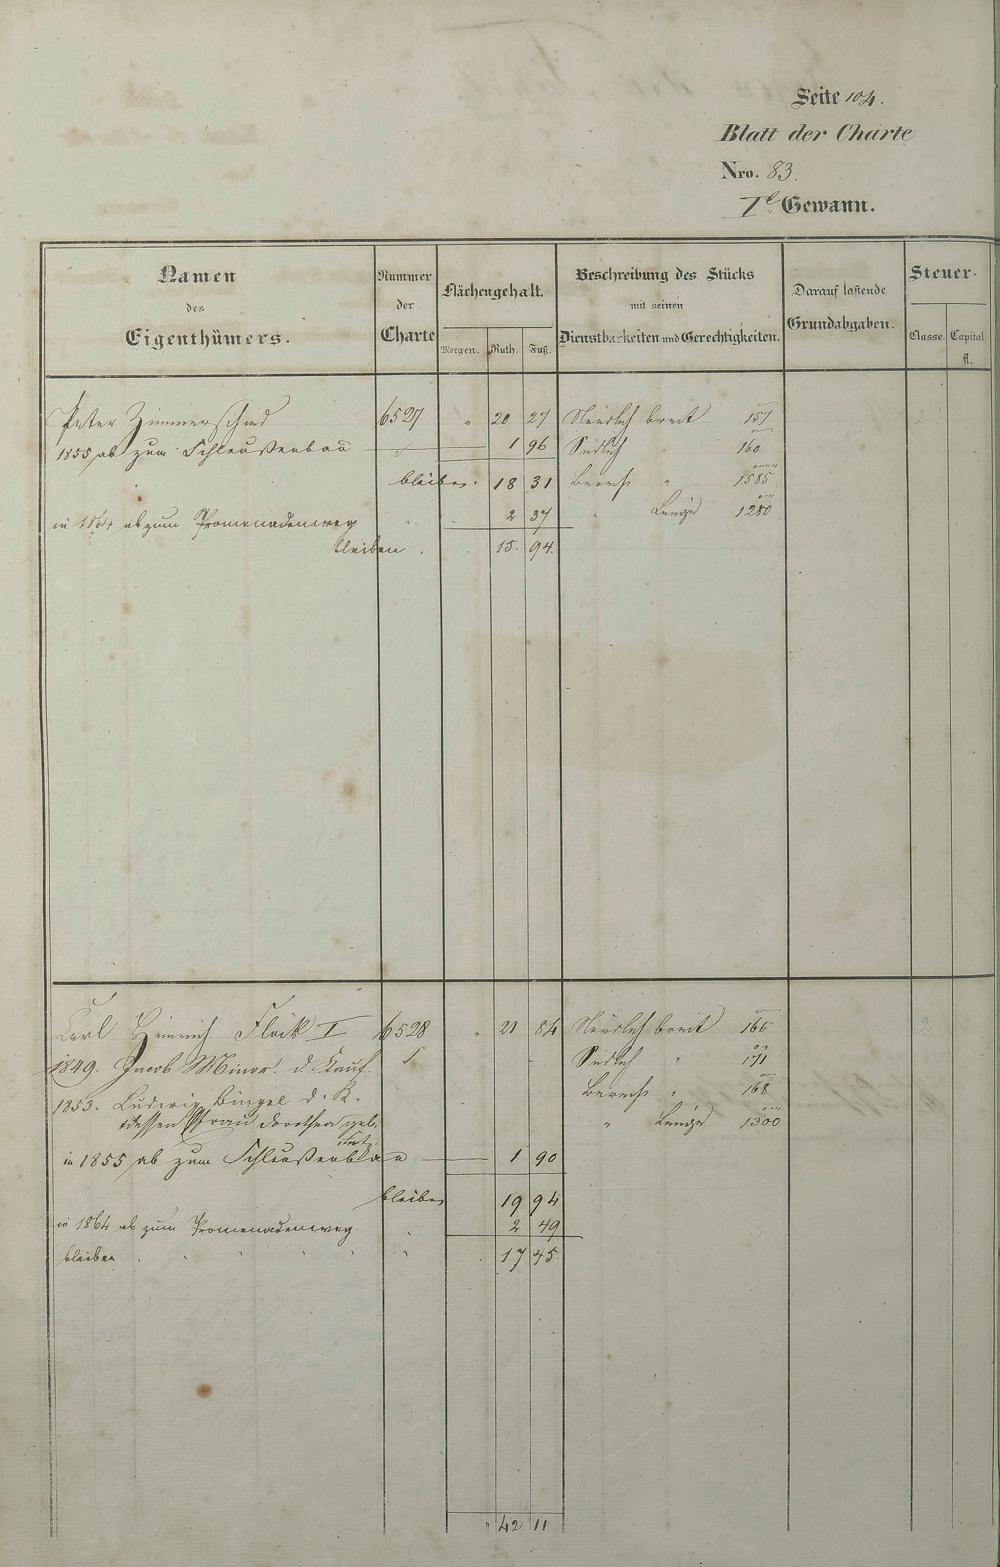 Seite 104.
Blatt der Charte
Nro. 83.
I. Gewann.
Namen des Eigenthümers.
Nummer der Charte
Flächengehalt.
Morgen. Ruth. Fuß.
Beschreibung des Stücks mit seinen Dienstbarkeiten und Gerechtigkeiten.
Darauf lastende Grundabgaben.
Steuer-
Classe. Capital. fl.
Peter Zimmerschied 6527 " 20 27 Nördlich breit 157 2
1855 ab zum Schleußenbau 1 96 Südlich " 160
bleiben. 18 31 Berech " 1585
in 1864 ab zum Promenadenweg " 2 37 " Länge 1280
bleiben . 15. 94.
Carl Heinrich Flöck I 6528 " 21 84 Nördlich breit 165 2
1849. Jacob Minor. d. Kauf. Südlich " 171
1853. Ludwig Bingel d. K. Berech " 168
dessen Frau Dorothea geb. " Länge 1300
in 1855 ab zum Schleußenbau 1 90
bleiben 19 94
in 1864 ab zum Promenadenweg " 2 49
bleiben " " " " " 17 45.
" 42 11